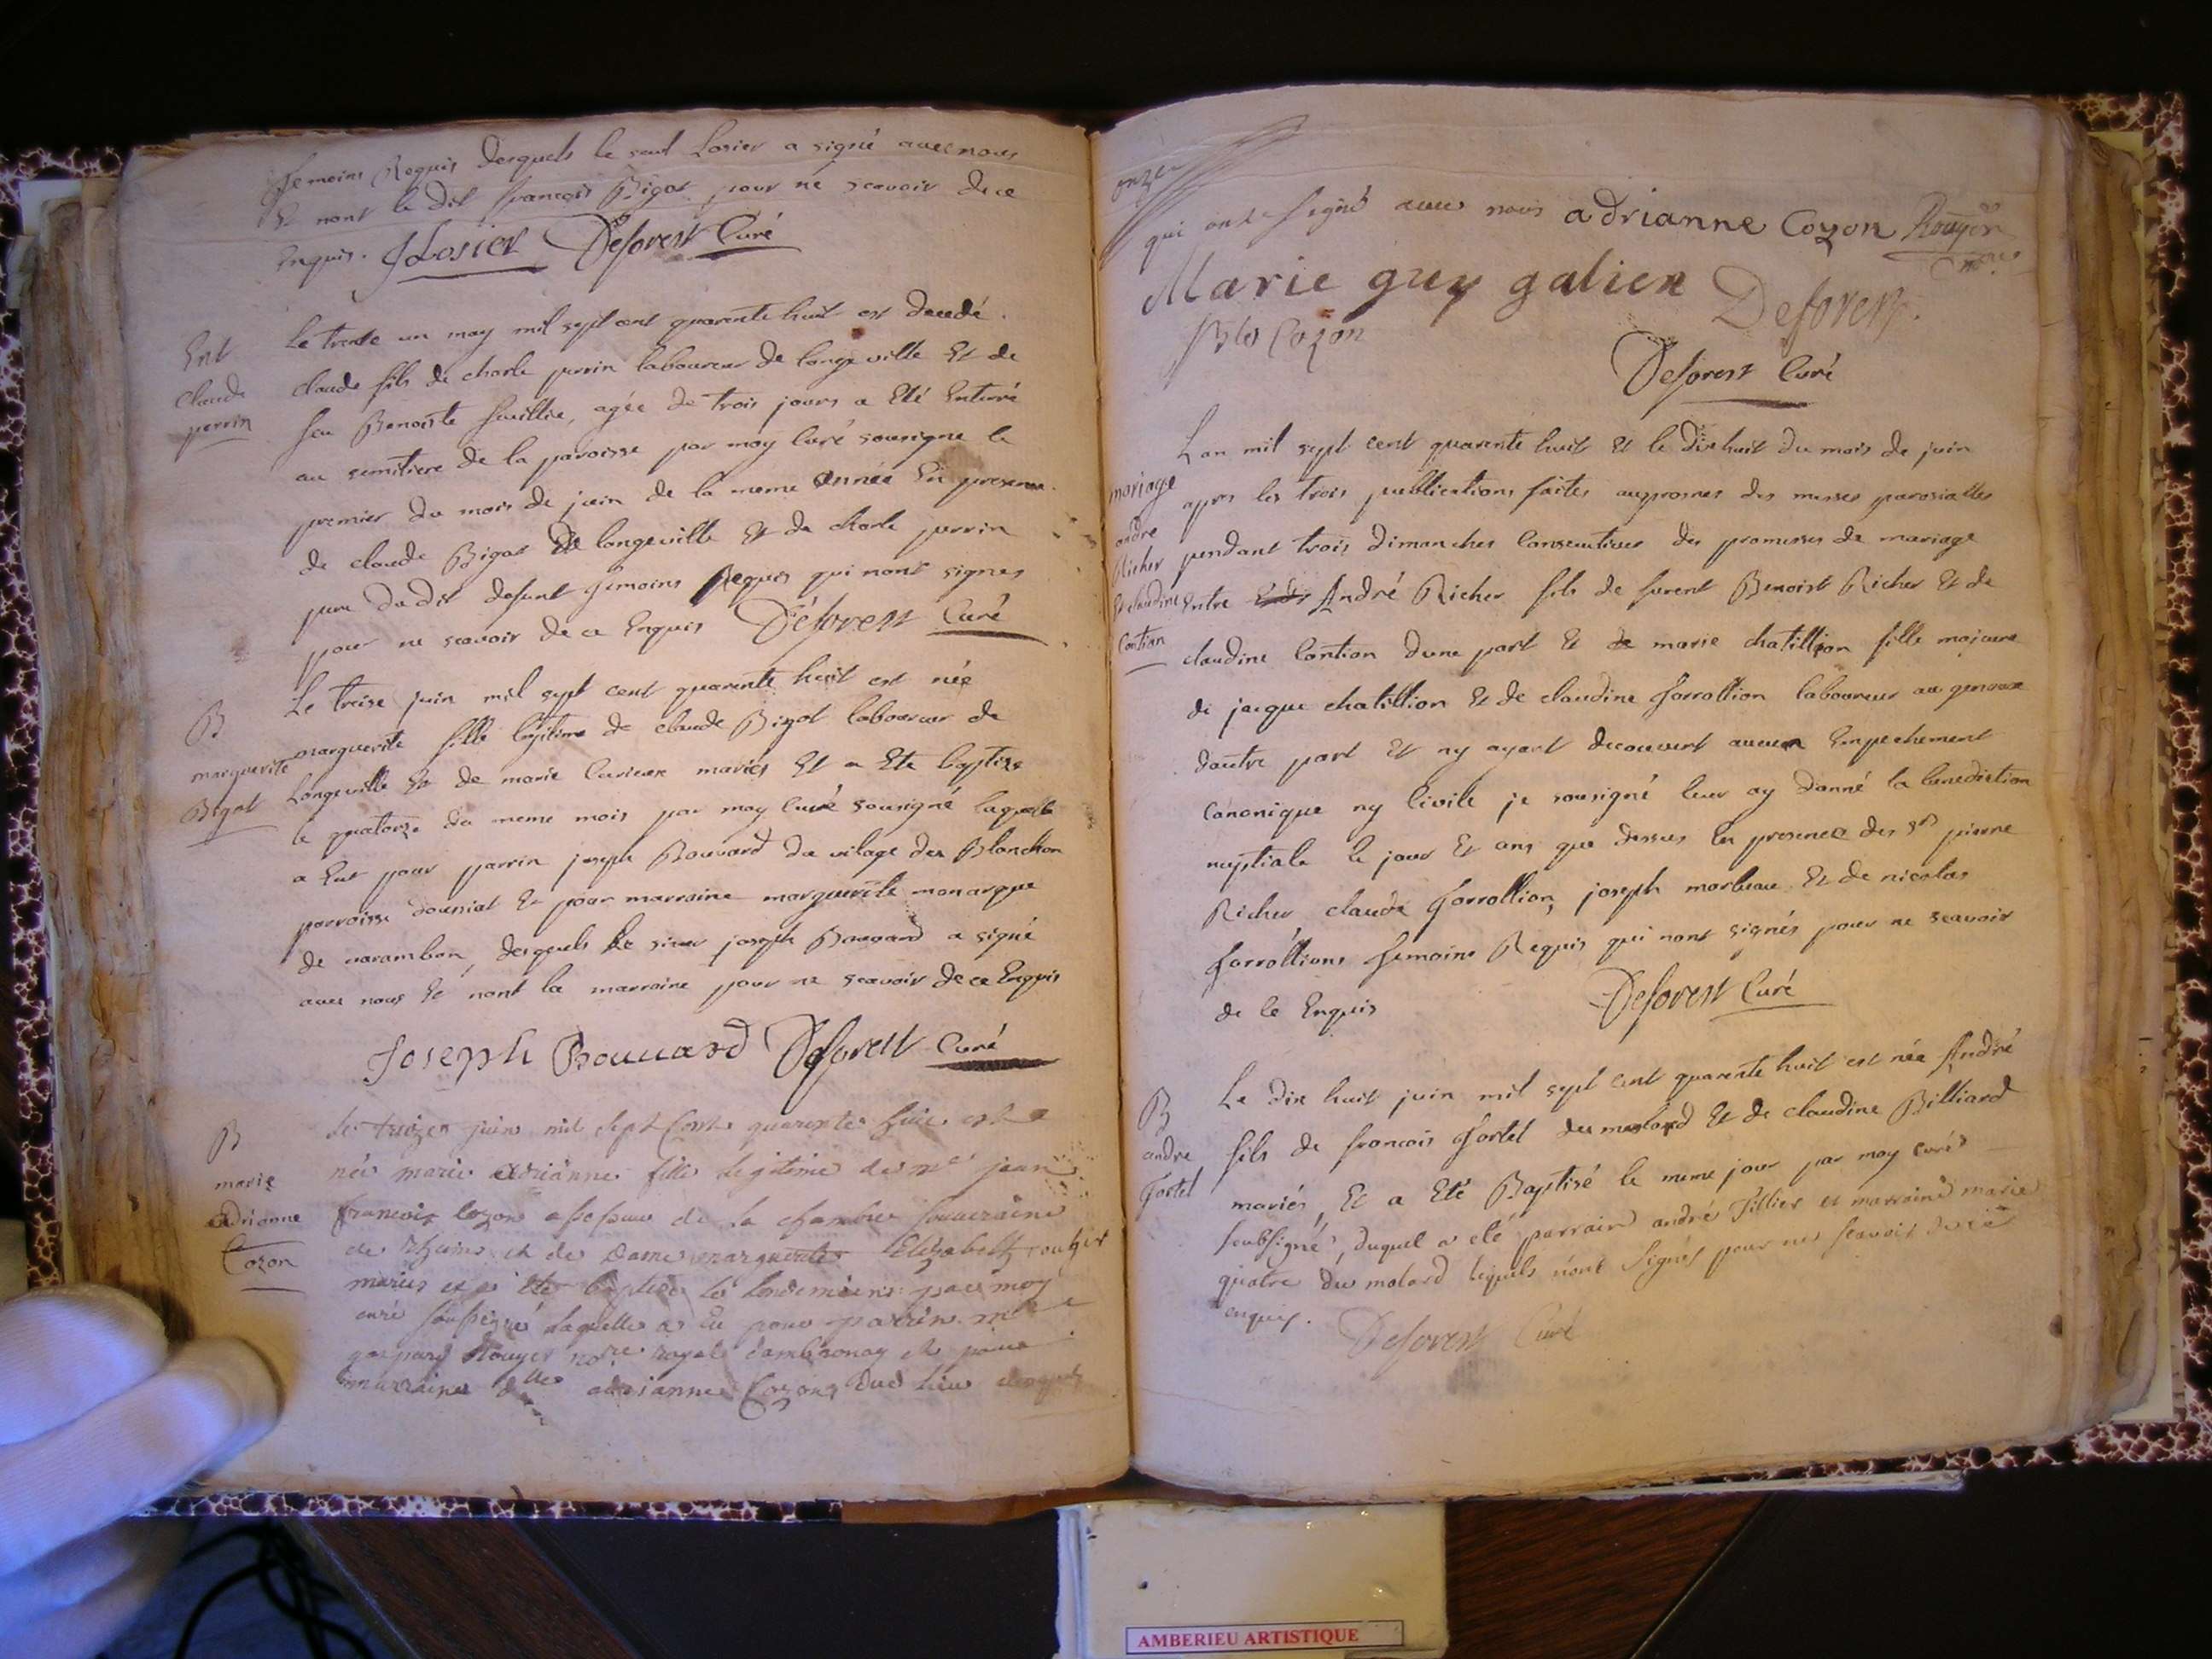 temoins Requis desquels le seul Losier a signé avec nous
Et nont le dit francois Bigot pour ne scavoir de ce
Enquis. JLosier Deforest Curé
Ent
Claude
perrin
Le trente un may mil sept cent quarente huit est decedé
claude fils de charle perrin laboureur de longeville Et de
feu Benoiste, agée de trois jours a Eté Enterré
au semitiere de la paroisse par moy Curé sousigne le
premier du mois de juin de la meme année En presence
de claude Bigot de longeville Et de charle perrin
pere du dit defunt temoins Requis qui nont signes
pour ne scavoir de ce Enquis Deforest Curé
B
marguerite
Bigot
Le treise juin mil sept cent quarente huit est née
marguerite fille legitime de claude Bigot laboureur de
Longeville Et de marie mariés Et a Ete baptise
le quatorze du meme mois par moy Curé sousigné laquelle
a Eut pour parrin joseph Bouvard du vilage des Blanchon
parroisse Et pour marraine marguerite monarque
de varambon, desquels le sieur joseph Bouvard a signé
avec nous Et nont la marraine pour ne scavoir de ce Enquis
Joseph Bouuard Deforest Curé
B
marie
adrianne
Cozon
le treizes juin mil sept Cent quarente huit est
née marie adrianne fille legitime de me jean
francois Cozon de la chambre souveraine
de et de Dame marguerite Elizabeth rouger
mariés et a été baptisée le lendemains par moy
curé soussigné laquelle a eu pour parrin me
gaspard Rouger nore royal dambronay et pour
marraine dlle adrianne Cozon dud lieu desquels
onze
qui ont signé avec nous adrianne Cozon Rouger
Marie guy galien Deforest
Cozon
Deforest Curé
mariage
andre
Richer
Et claudine
Contion
Lan mil sept cent quarente huit Et le dix huit du mois de juin
apres les trois publications faites auprosnes des messes parosialles
pendant trois dimanches Consecutives des promesses de mariage
Entre André Richer fils de furent Benoist Richer Et de
claudine Contion dune part Et de marie chatillion fille majeure
de jacque chatillion Et de claudine forrollion laboureur au genoux
dautre part Et ny ayant decouvert aucun Empechement
Canonique ny Civile je sousigné leur ay donné la benediction
nuptiale le jour Et ans que dessus En presence des srs pierre
Richer claude forrollion, joseph morbeau Et de nicolas
forrollions temoins Requis qui nont signés pour ne scavoir
de Ce Enquis Deforest Curé
B
andre
fortel
Le dix huit juin mil sept cent quarente huit est née André
fils de francois fortel du molard Et de claudine Billiard
mariés, Et a Eté Baptisé le meme jour par moy curé
soubsigné, duquel a eté parrain andré Tillier et marraine marie
quatre du molard lesquels n'ont signés pour ne scavoir de ce
enquis. Deforest Curé
AMBERIEU ARTISTIQUE